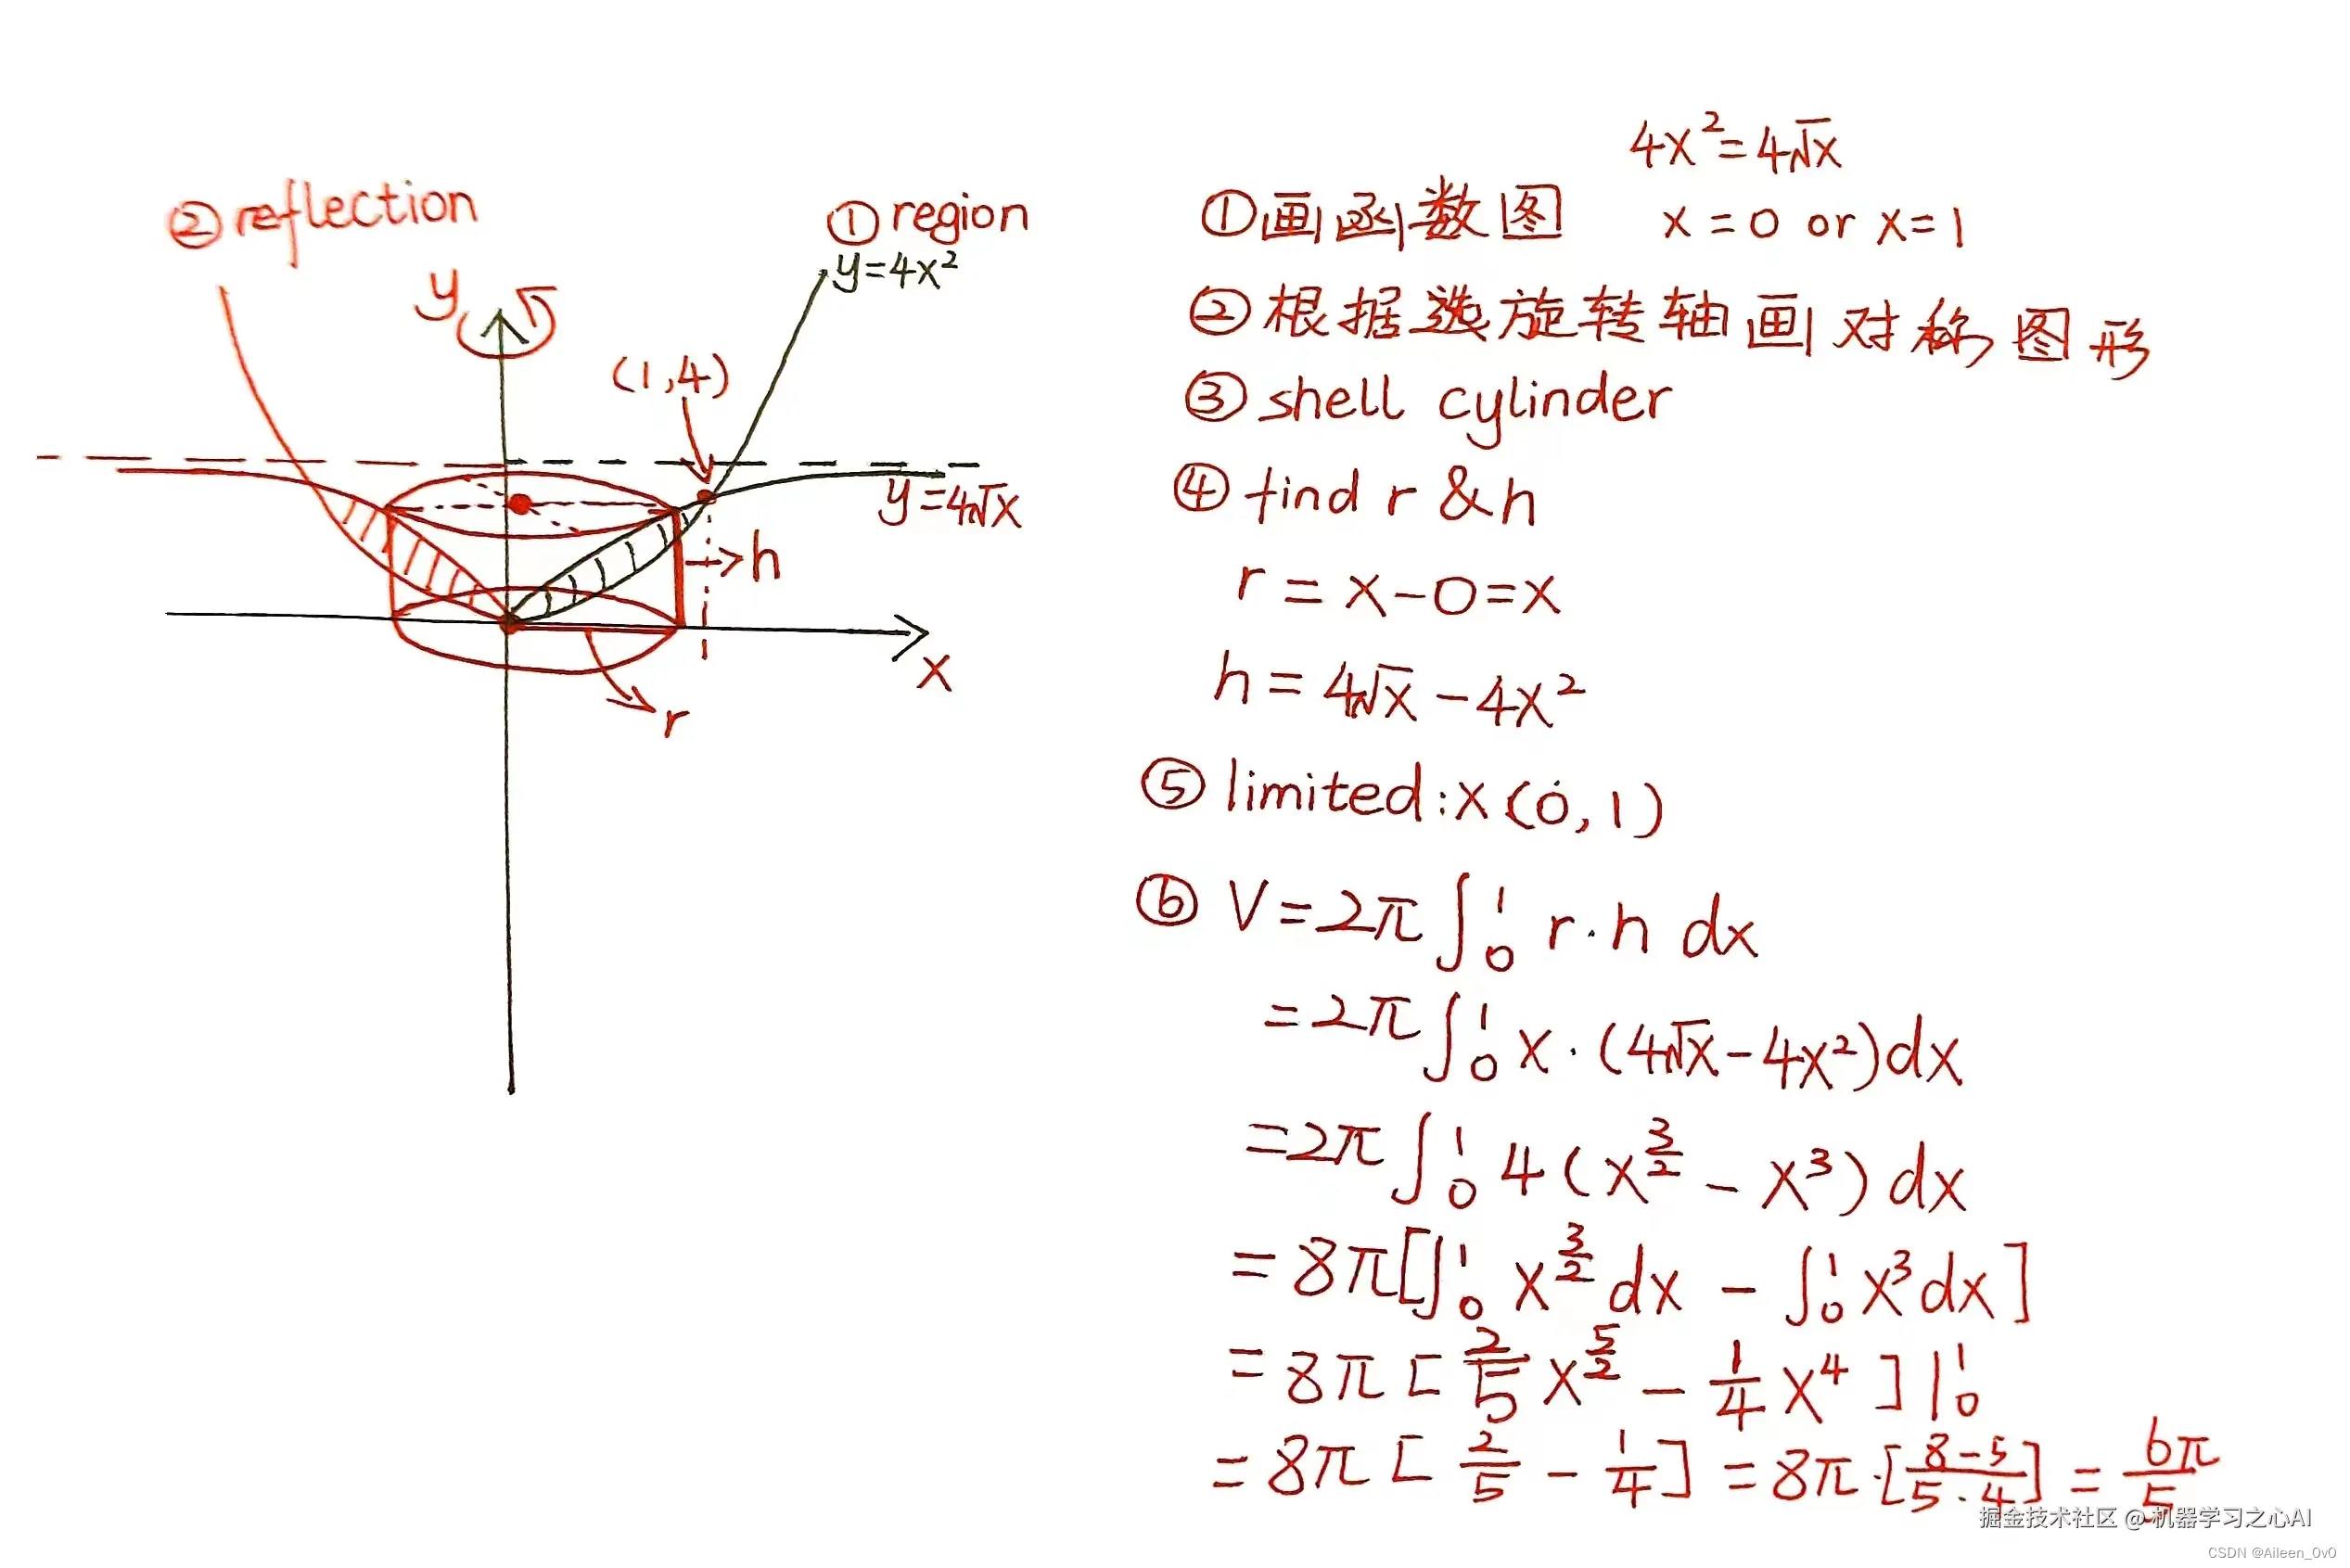 ②reflection
①region
y=4x²
y
(1,4)
y=4√x
h
x
r
4x²=4√x
①画函数图
x=0 or x=1
②根据选旋转轴画对称图形
③shell cylinder
④find r &h
r=x-0=x
h=4√x-4x²
⑤limited:x(0,1)
⑥ V=2π∫₀¹ r·h dx
=2π∫₀¹ x·(4√x-4x²)dx
=2π∫₀¹ 4(x^{3/2}-x³)dx
=8π[∫₀¹ x^{3/2}dx-∫₀¹x³dx]
=8π[2/5 x^{5/2}-1/4 x⁴]|₀¹
=8π[2/5-1/4]=8π·[(8-5)/(5·4)]=6π/5
掘金技术社区 @ 机器学习之心AI
CSDN @Aileen_0v0